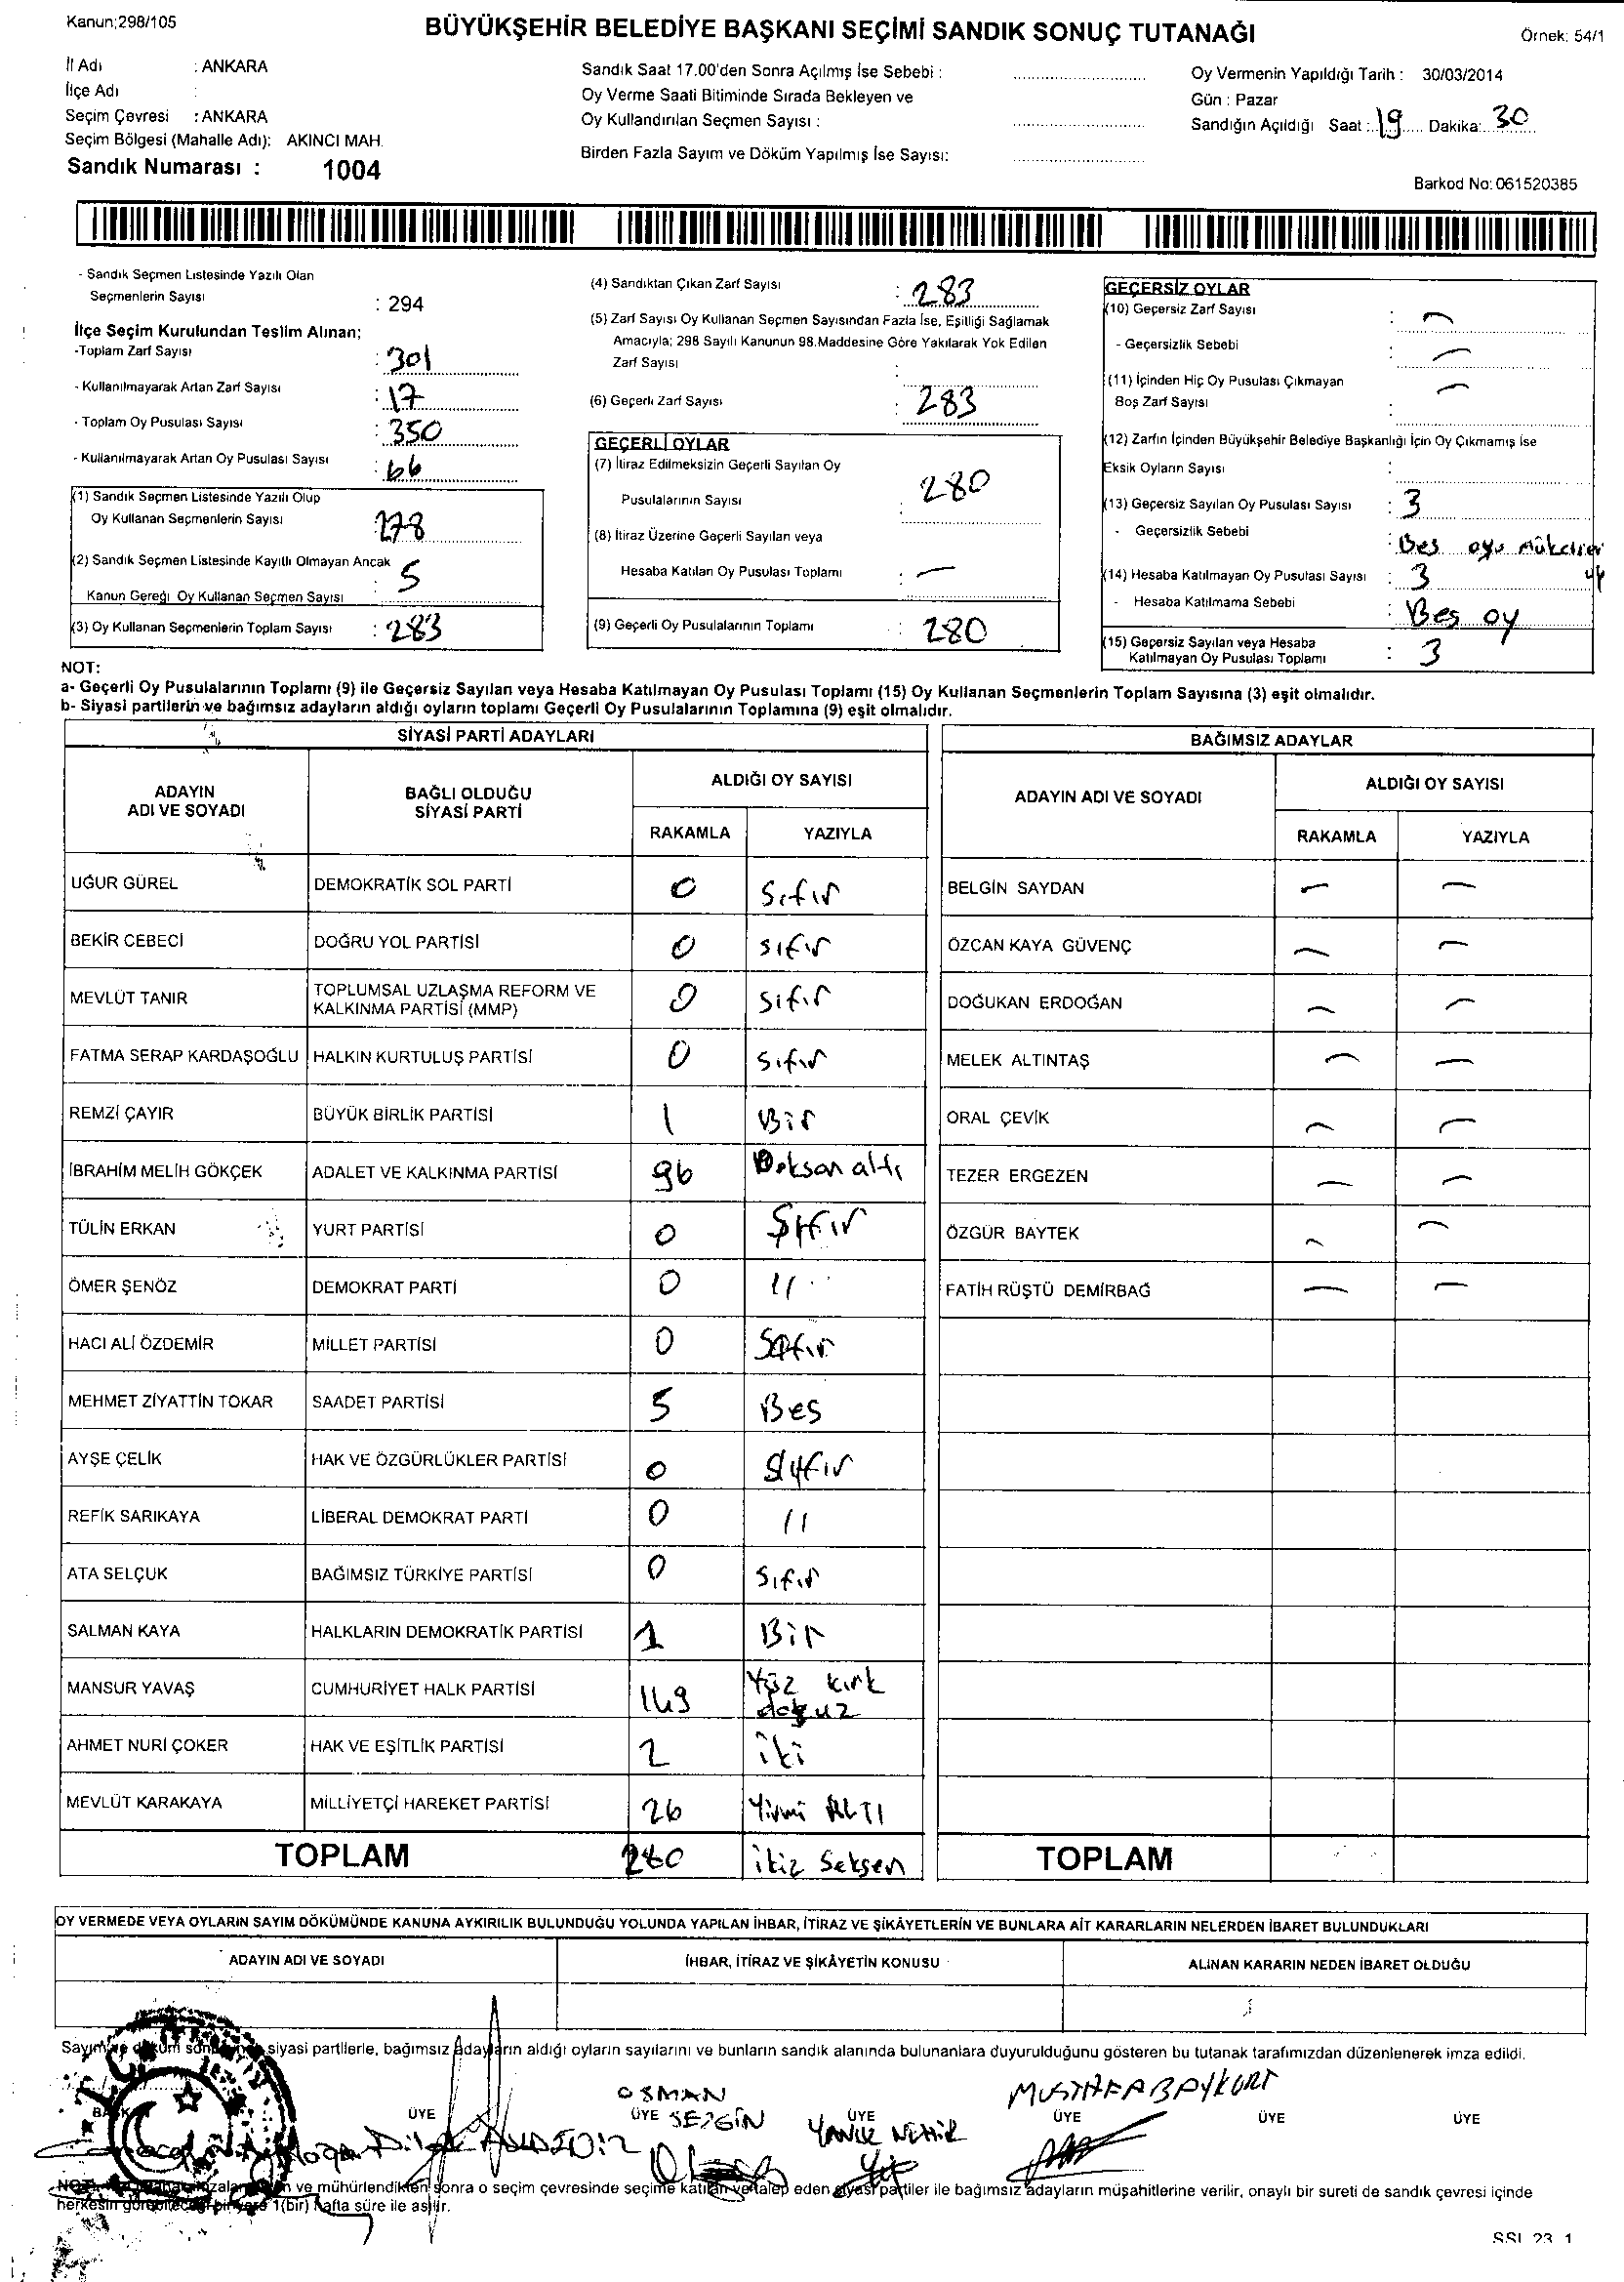 Kanun;298/105
BÜYÜKŞEHİR BELEDİYE BAŞKANI SEÇİMİ SANDIK SONUÇ TUTANAĞI
Örnek: 54/1
İl Adı : ANKARA
İlçe Adı :
Seçim Çevresi : ANKARA
Seçim Bölgesi (Mahalle Adı): AKINCI MAH.
Sandık Numarası : 1004
Sandık Saat 17.00'den Sonra Açılmış İse Sebebi :
Oy Verme Saati Bitiminde Sırada Bekleyen ve
Oy Kullandırılan Seçmen Sayısı :
Birden Fazla Sayım ve Döküm Yapılmış İse Sayısı:
Oy Vermenin Yapıldığı Tarih : 30/03/2014
Gün : Pazar
Sandığın Açıldığı Saat : 19 Dakika: 30
Barkod No: 061520385
- Sandık Seçmen Listesinde Yazılı Olan
Seçmenlerin Sayısı : 294
İlçe Seçim Kurulundan Teslim Alınan;
-Toplam Zarf Sayısı : 301
- Kullanılmayarak Artan Zarf Sayısı : 17
- Toplam Oy Pusulası Sayısı : 350
- Kullanılmayarak Artan Oy Pusulası Sayısı : 66
(1) Sandık Seçmen Listesinde Yazılı Olup
Oy Kullanan Seçmenlerin Sayısı : 278
(2) Sandık Seçmen Listesinde Kayıtlı Olmayan Ancak
Kanun Gereği Oy Kullanan Seçmen Sayısı : 5
(3) Oy Kullanan Seçmenlerin Toplam Sayısı : 283
(4) Sandıktan Çıkan Zarf Sayısı : 283
(5) Zarf Sayısı Oy Kullanan Seçmen Sayısından Fazla İse, Eşitliği Sağlamak
Amacıyla; 298 Sayılı Kanunun 98.Maddesine Göre Yakılarak Yok Edilen
Zarf Sayısı :
(6) Geçerli Zarf Sayısı : 283
GEÇERLİ OYLAR
(7) İtiraz Edilmeksizin Geçerli Sayılan Oy
Pusulalarının Sayısı : 280
(8) İtiraz Üzerine Geçerli Sayılan veya
Hesaba Katılan Oy Pusulası Toplamı : —
(9) Geçerli Oy Pusulalarının Toplamı : 280
GEÇERSİZ OYLAR
(10) Geçersiz Zarf Sayısı : —
- Geçersizlik Sebebi : —
(11) İçinden Hiç Oy Pusulası Çıkmayan —
Boş Zarf Sayısı :
(12) Zarfın İçinden Büyükşehir Belediye Başkanlığı İçin Oy Çıkmamış İse
Eksik Oyların Sayısı :
(13) Geçersiz Sayılan Oy Pusulası Sayısı : 3
- Geçersizlik Sebebi : Beş oyu
(14) Hesaba Katılmayan Oy Pusulası Sayısı : 3
- Hesaba Katılmama Sebebi : Beş oy
(15) Geçersiz Sayılan veya Hesaba
Katılmayan Oy Pusulası Toplamı : 3
NOT:
a- Geçerli Oy Pusulalarının Toplamı (9) ile Geçersiz Sayılan veya Hesaba Katılmayan Oy Pusulası Toplamı (15) Oy Kullanan Seçmenlerin Toplam Sayısına (3) eşit olmalıdır.
b- Siyasi partilerin ve bağımsız adayların aldığı oyların toplamı Geçerli Oy Pusulalarının Toplamına (9) eşit olmalıdır.
SİYASİ PARTİ ADAYLARI
ADAYIN ADI VE SOYADI
BAĞLI OLDUĞU SİYASİ PARTİ
ALDIĞI OY SAYISI
RAKAMLA YAZIYLA
UĞUR GÜREL DEMOKRATİK SOL PARTİ 0 Sıfır
BEKİR CEBECİ DOĞRU YOL PARTİSİ 0 sıfır
MEVLÜT TANIR TOPLUMSAL UZLAŞMA REFORM VE KALKINMA PARTİSİ (MMP) 0 sıfır
FATMA SERAP KARDAŞOĞLU HALKIN KURTULUŞ PARTİSİ 0 sıfır
REMZİ ÇAYIR BÜYÜK BİRLİK PARTİSİ 1 Bir
İBRAHİM MELİH GÖKÇEK ADALET VE KALKINMA PARTİSİ 96 Doksan altı
TÜLİN ERKAN YURT PARTİSİ 0 Sıfır
ÖMER ŞENÖZ DEMOKRAT PARTİ 0 11
HACI ALİ ÖZDEMİR MİLLET PARTİSİ 0 Sıfır
MEHMET ZİYATTİN TOKAR SAADET PARTİSİ 5 Beş
AYŞE ÇELİK HAK VE ÖZGÜRLÜKLER PARTİSİ 0 Sıfır
REFİK SARIKAYA LİBERAL DEMOKRAT PARTİ 0 11
ATA SELÇUK BAĞIMSIZ TÜRKİYE PARTİSİ 0 Sıfır
SALMAN KAYA HALKLARIN DEMOKRATİK PARTİSİ 1 Bir
MANSUR YAVAŞ CUMHURİYET HALK PARTİSİ 149 Yüz kırk doguz
AHMET NURİ ÇOKER HAK VE EŞİTLİK PARTİSİ 2 iki
MEVLÜT KARAKAYA MİLLİYETÇİ HAREKET PARTİSİ 26 Yirmi ALTI
TOPLAM 280 ikiz Seksen
BAĞIMSIZ ADAYLAR
ADAYIN ADI VE SOYADI
ALDIĞI OY SAYISI
RAKAMLA YAZIYLA
BELGİN SAYDAN — —
ÖZCAN KAYA GÜVENÇ — —
DOĞUKAN ERDOĞAN — —
MELEK ALTINTAŞ — —
ORAL ÇEVİK — —
TEZER ERGEZEN — —
ÖZGÜR BAYTEK — —
FATİH RÜŞTÜ DEMİRBAĞ — —
TOPLAM
OY VERMEDE VEYA OYLARIN SAYIM DÖKÜMÜNDE KANUNA AYKIRILIK BULUNDUĞU YOLUNDA YAPILAN İHBAR, İTİRAZ VE ŞİKÂYETLERİN VE BUNLARA AİT KARARLARIN NELERDEN İBARET BULUNDUKLARI
ADAYIN ADI VE SOYADI
İHBAR, İTİRAZ VE ŞİKÂYETİN KONUSU
ALINAN KARARIN NEDEN İBARET OLDUĞU
siyasi partilerle, bağımsız adayların aldığı oyların sayılarını ve bunların sandık alanında bulunanlara duyurulduğunu gösteren bu tutanak tarafımızdan düzenlenerek imza edildi.
OSMAN MUSTAFA BAYKURT
ÜYE ÜYE SEZGİN ÜYE ÜYE ÜYE ÜYE
ve mühürlendikten sonra o seçim çevresinde seçime katılan ve talep eden siyasi partiler ile bağımsız adayların müşahitlerine verilir, onaylı bir sureti de sandık çevresi içinde
herkesin görebileceği bir yere 1(bir) hafta süre ile asılır.